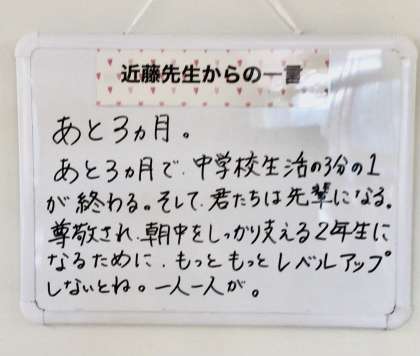 近藤先生からの一言
あと3ヵ月。
あと3ヵ月で、中学校生活の3分の1
が終わる。そして、君たちは先輩になる。
尊敬され、朝中をしっかり支える2年生に
なるために、もっともっとレベルアップ
しないとね。一人一人が。